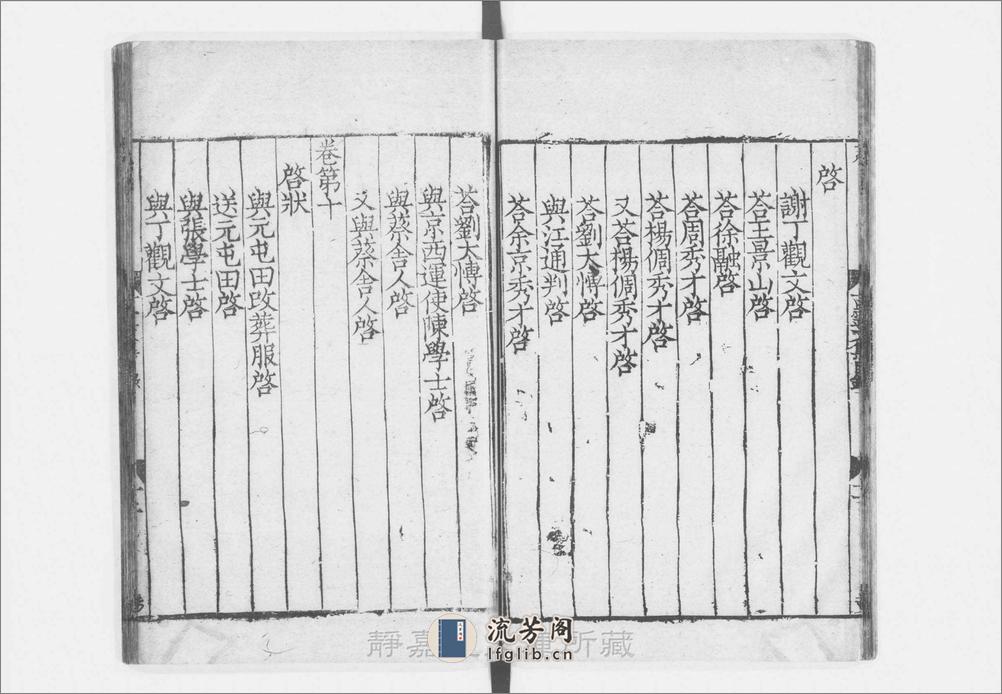 啓
謝丁觀文啓
荅王景山啓
荅徐融啓
荅周秀才啓
荅楊倜秀才啓
又荅楊倜秀才啓
荅劉太愽啓
與江通判啓
荅余京秀才啓
荅劉太愽啓
與京西運使陳學士啓
與蔡舍人啓
又與蔡舍人啓
卷第十
啓狀
與元屯田改葬服啓
送元屯田啓
與張學士啓
與丁觀文啓
流芳阁
lfglib.cn
靜嘉 所藏